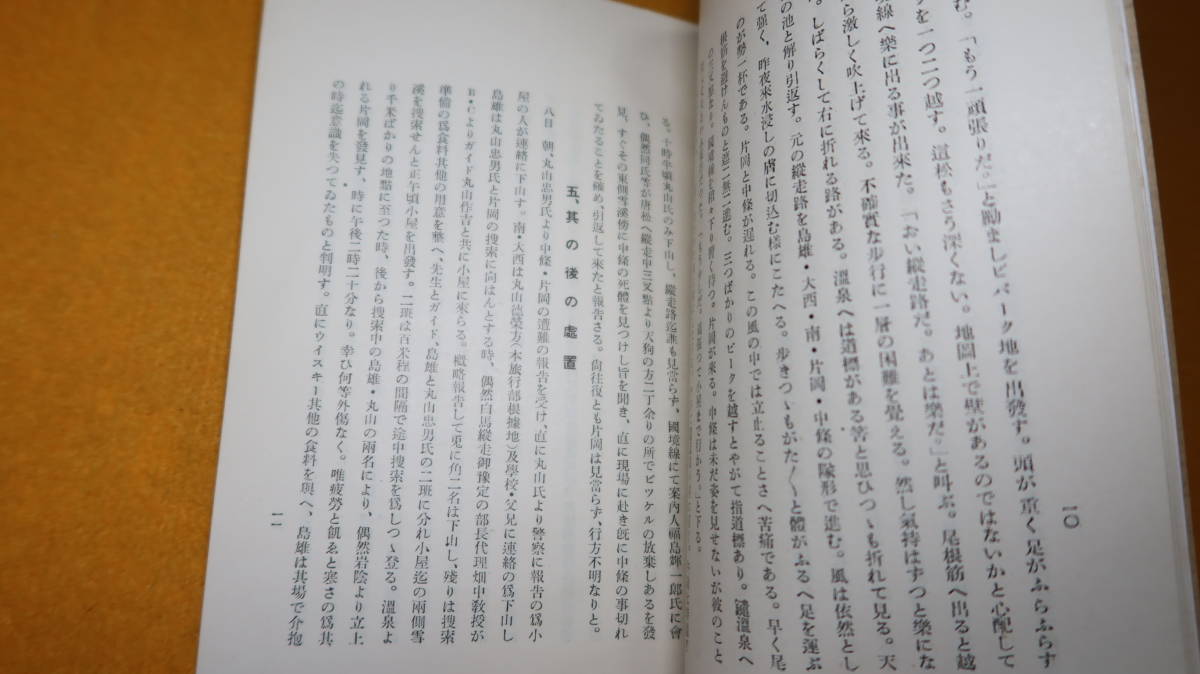 む。「もう一頑張りだ。」と勵ましビバーク地を出發す。頭が重く足がふらふらす
を一つ二つ越す。這松もさう深くない。地圖上で壁があるのではないかと心配して
線へ樂に出る事が出來た。「おい縱走路だ。あとは樂だ。」と叫ぶ。尾根筋へ出ると越
ら激しく吹上げて來る。不確實な歩行に一層の困難を覺える。然し氣持はずつと樂にな
。しばらくして右に折れる路がある。溫泉へは道標がある筈と思ひつゝも折れて見る。天
の池と解り引返す。元の縱走路を島雄・大西・南・片岡・中條の隊形で進む。風は依然とし
て強く、昨夜來水浸しの膚に切込む樣にこたへる。歩きつゝもがた〱と體がふるへ足を運ぶ
のが勢一杯である。片岡と中條が遲れる。この風の中では立止ることさへ苦痛である。早く尾
根筋を避けんものと遮二無二進む。三つばかりのピークを越すとやがて指道標あり。鑓溫泉へ
の三叉點なり。國境線を稍々下り暫く待つ。片岡が來る。中條は未だ姿を見せないが彼のこと
一〇
る。十時半頃丸山氏のみ下山し、縱走路迄誰も見當らず、國境線にて案內人福島輝一郎氏に會
ひ、偶然同氏等が唐松へ縱走中三叉點より天狗の方二丁余りの所でピツケルの放棄しあるを發
見、すぐその東側雪溪傍に中條の死體を見つけし旨を聞き、直に現場に赴き既に中條の事切れ
てゐたることを確め、引返して來たと報告さる。尙往復とも片岡は見當らず、行方不明なりと。
五、其の後の處置
八日　朝、丸山忠男氏より中條・片岡の遭難の報告を受け、直に丸山氏より警察に報告の爲小
屋の人が連絡に下山す。南・大西は丸山德榮方(本旅行部根據地)及學校・父兄に連絡の爲下山し
島雄は丸山忠男氏と片岡の搜索に向はんとする時、偶然白馬縱走御豫定の部長代理畑中敎授が
B・Cよりガイド丸山作吉と共に小屋に來らる。概略報告して兎に角二名は下山し、殘りは搜索
準備の爲食料其他の用意を整へ、先生とガイド、島雄と丸山忠男氏の二班に分れ小屋迄の兩側雪
溪を搜索せんと正午頃小屋を出發す。二班は百米程の間隔で途中搜索を爲しつゝ登る。溫泉よ
り千米ばかりの地點に至つた時、後から搜索中の島雄・丸山の兩名により、偶然岩陰より立上
れる片岡を發見す、時に午後二時二十分なり。幸ひ何等外傷なく。唯疲勞と飢ゑと寒さの爲其
の時迄意識を失つてゐたものと判明す。直にウイスキー其他の食料を與へ、島雄は其場で介抱
一一